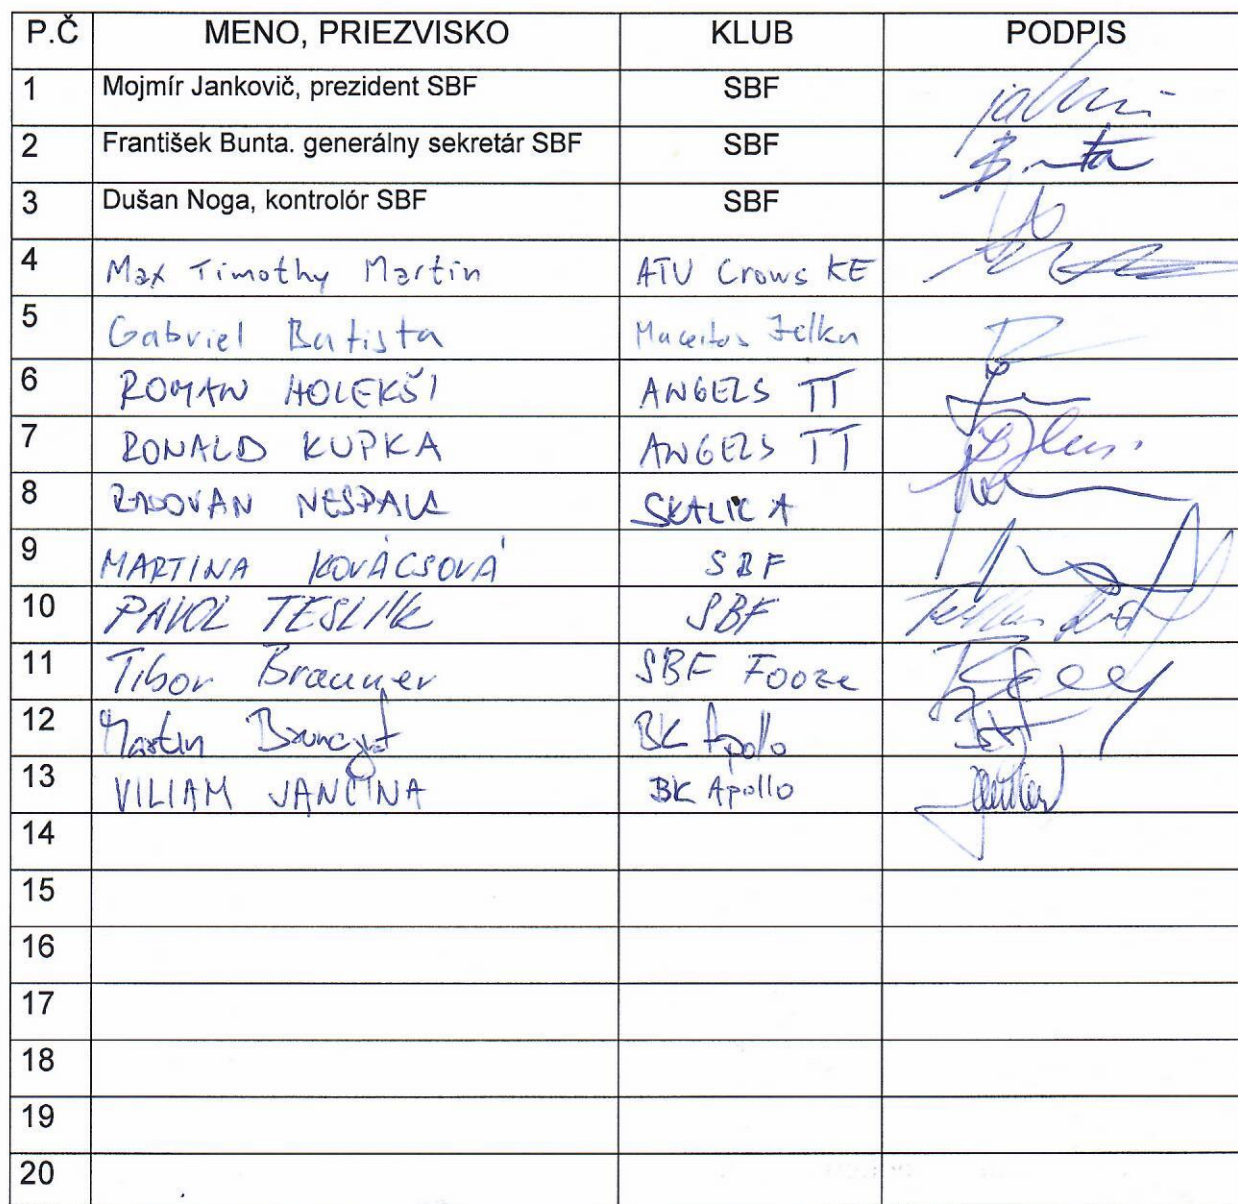 P.Č MENO, PRIEZVISKO KLUB PODPIS
1 Mojmír Jankovič, prezident SBF SBF
2 František Bunta. generálny sekretár SBF SBF Bunta
3 Dušan Noga, kontrolór SBF SBF
4 Max Timothy Martin ATU Crows KE
5 Gabriel Batista Jelka
6 ROMAN HOLEKŠI ANGELS TT
7 RONALD KUPKA ANGELS TT
8 RADOVAN NESPALA SKALICA
9 MARTINA KOVÁCSOVÁ SBF
10 PAVOL TESLIK SBF
11 Tibor Brauner SBF Fooze
12 Martin BK Apollo
13 VILIAM JANČINA BK Apollo
14
15
16
17
18
19
20